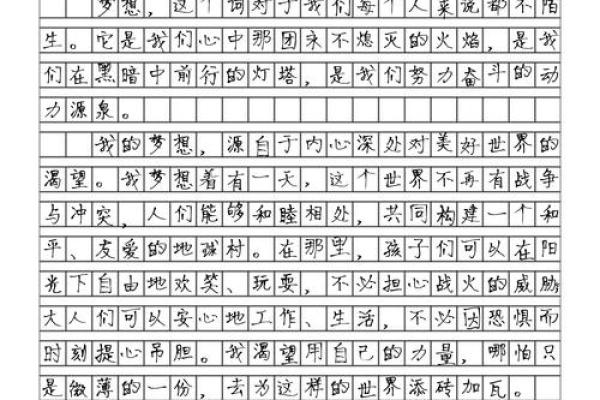 梦想，这个词对于我们每个人来说都不陌
生。它是我们心中那团永不熄灭的火焰，是我
们在黑暗中前行的灯塔，是我们努力奋斗的动
力源泉。
我的梦想，源自于内心深处对美好世界的
渴望。我梦想着有一天，这个世界不再有战争
与冲突，人们能够和睦相处，共同构建一个和
平、友爱的地球村。在那里，孩子们可以在阳
光下自由地欢笑、玩耍，不必担心战火的威胁
大人们可以安心地工作、生活，不必因恐惧而
时刻提心吊胆。我渴望用自己的力量，哪怕只
是微薄的一份，去为这样的世界添砖加瓦。